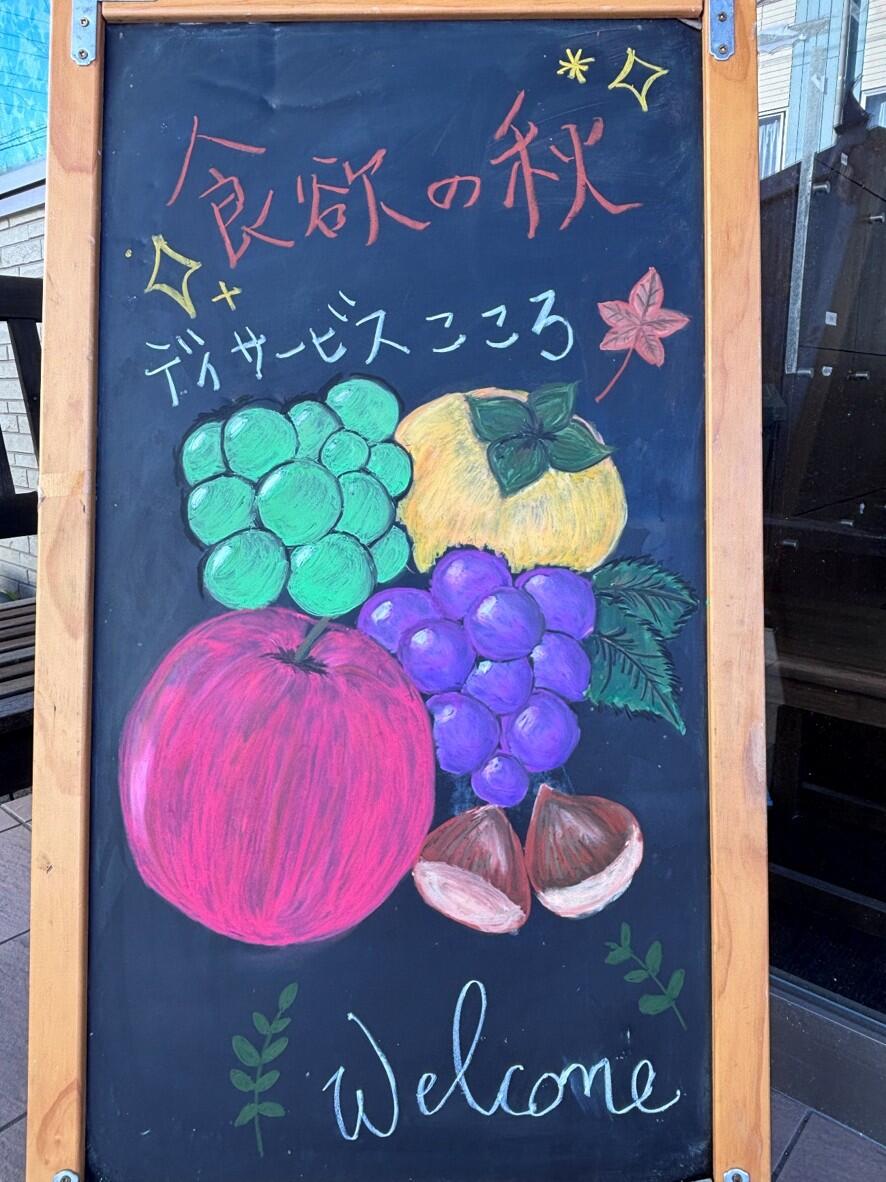 食欲の秋
デイサービスこころ
Welcome